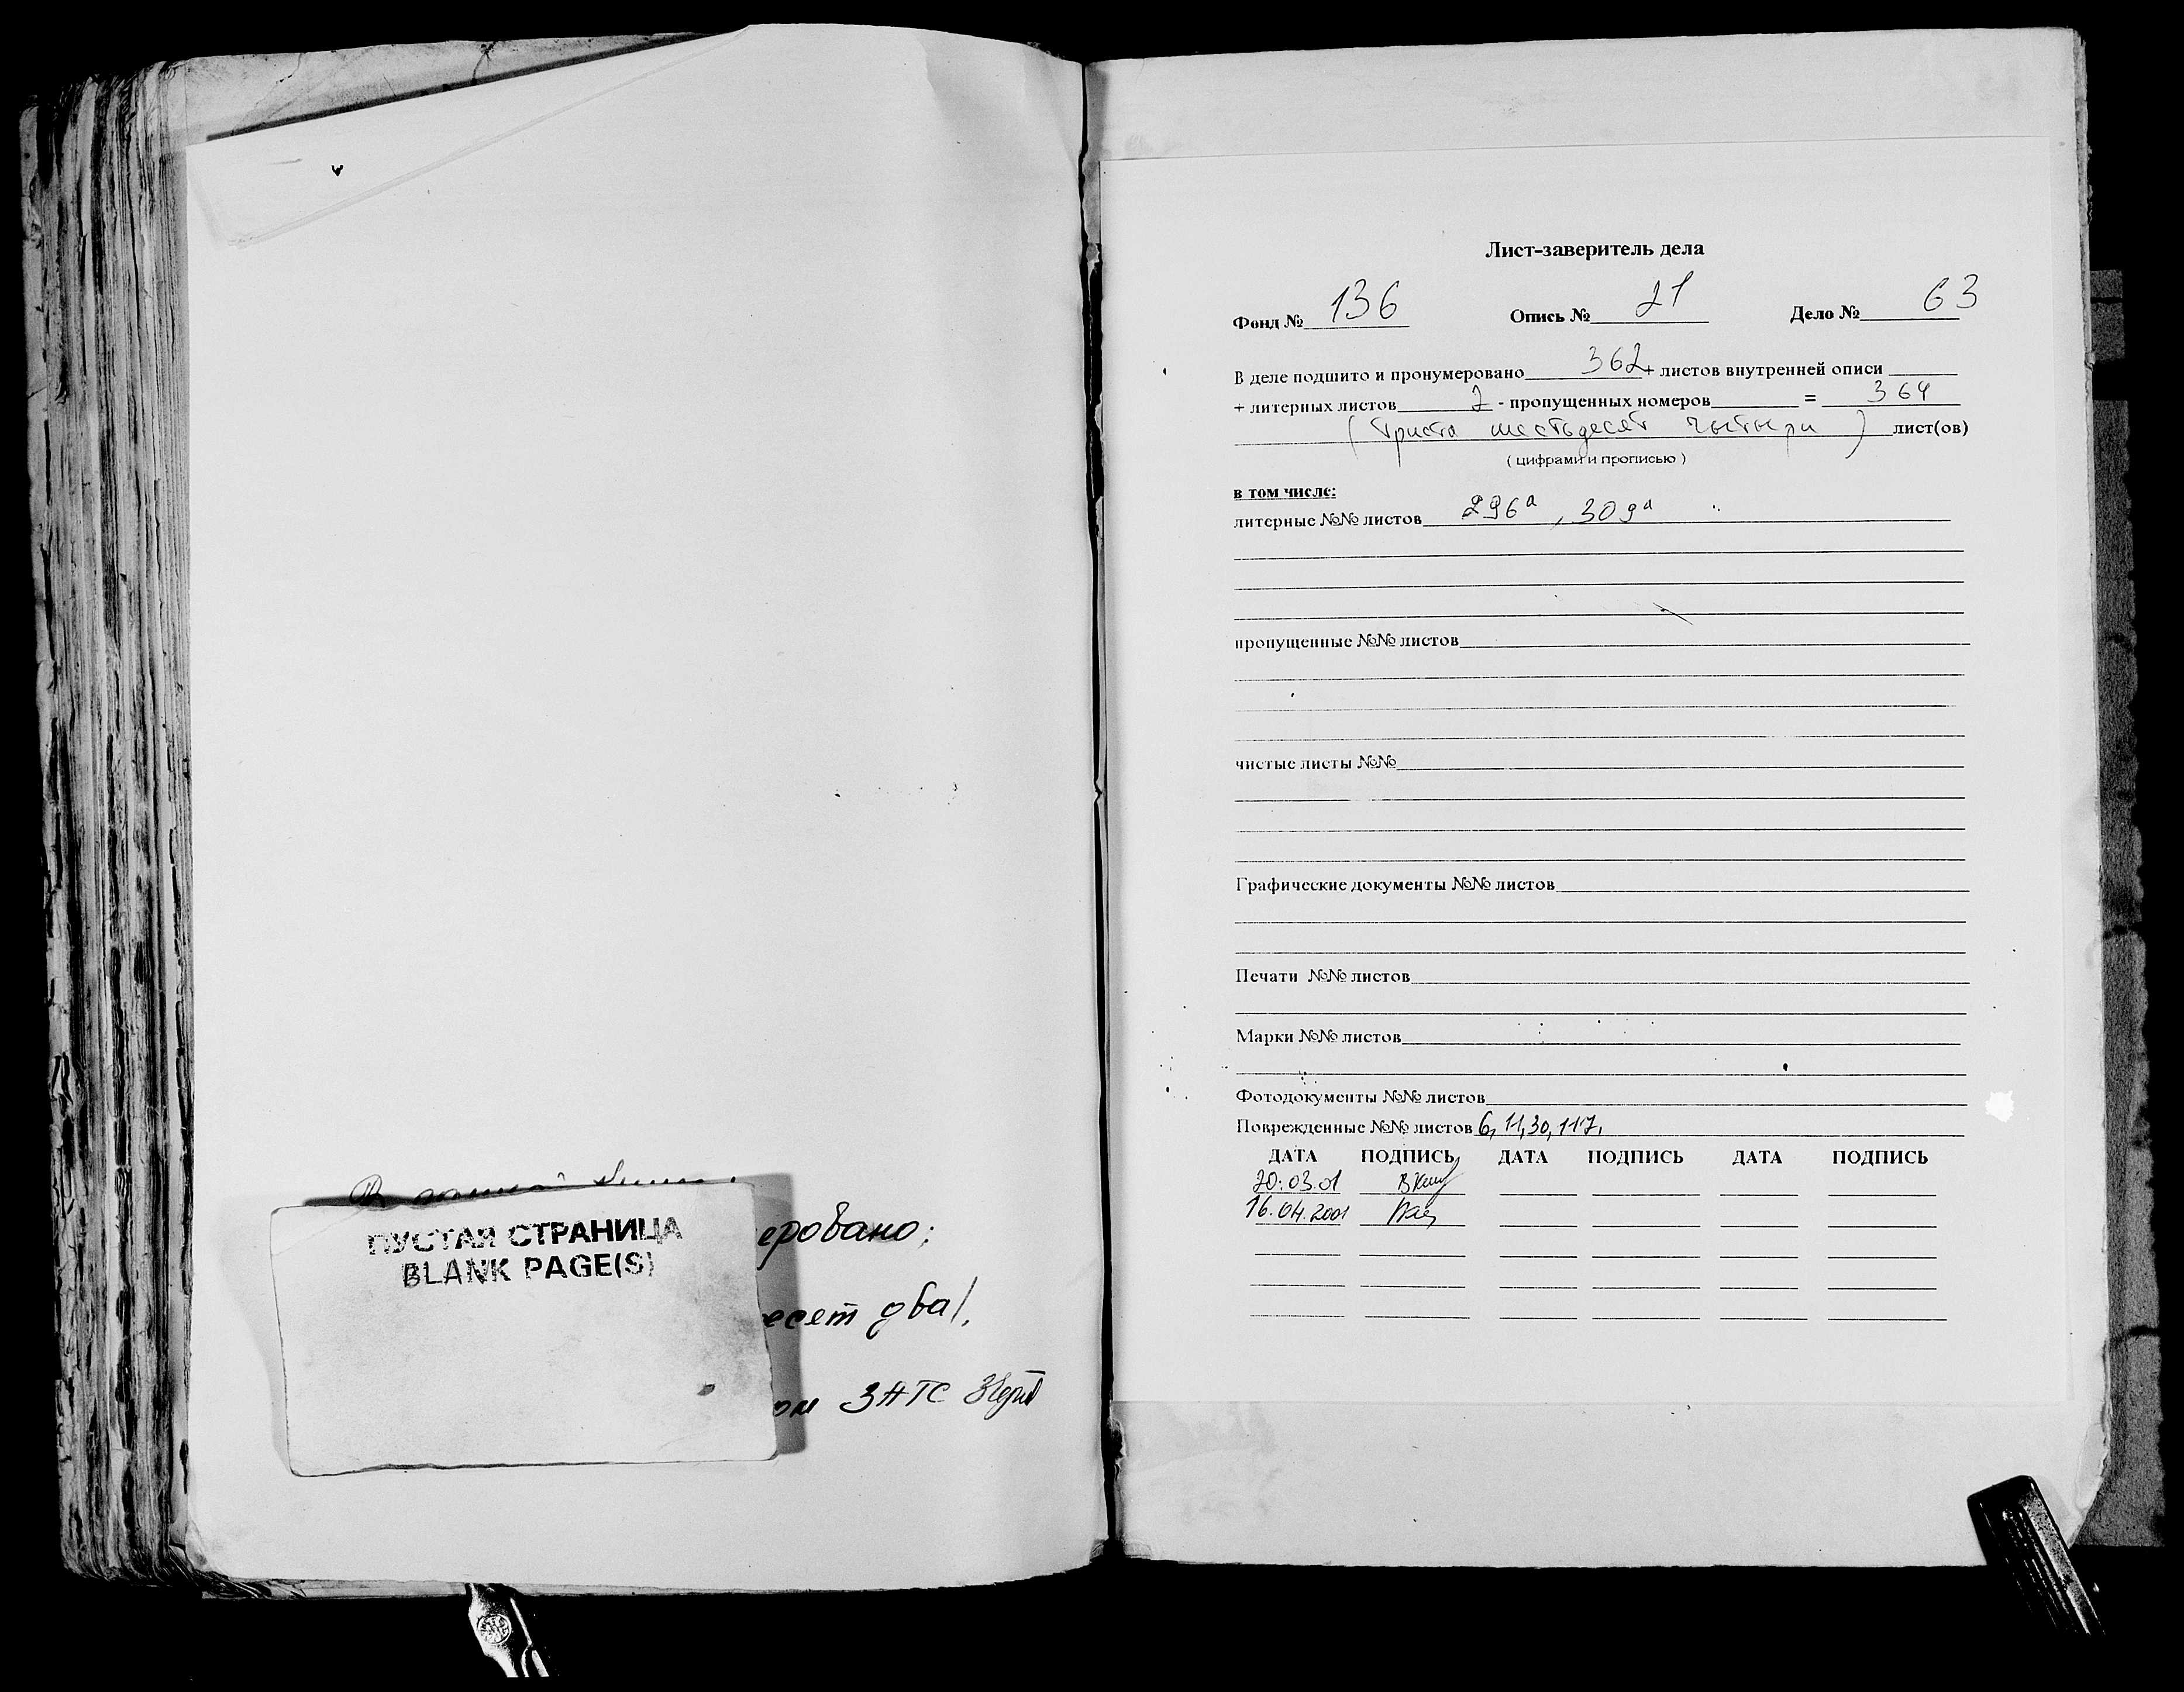 В
ПУСТАЯ СТРАНИЦА
BLANK PAGE(S)
еровано;
есет два/.
ом ЗАГС
Лист-заверитель дела
Фонд № 136 Опись № 21 Дело № 63
В деле подшито и пронумеровано 362 + листов внутренней описи
+ литерных листов 2 - пропущенных номеров = 364
(триста шестьдесят четыри) лист(ов)
( цифрами и прописью )
в том числе:
литерные №№ листов 296а, 309а
пропущенные №№ листов
чистые листы №№
Графические документы №№ листов
Печати №№ листов
Марки №№ листов
Фотодокументы №№ листов
Поврежденные №№ листов 6, 11, 30, 117,
ДАТА ПОДПИСЬ ДАТА ПОДПИСЬ ДАТА ПОДПИСЬ
20.03.01
16.04.2001